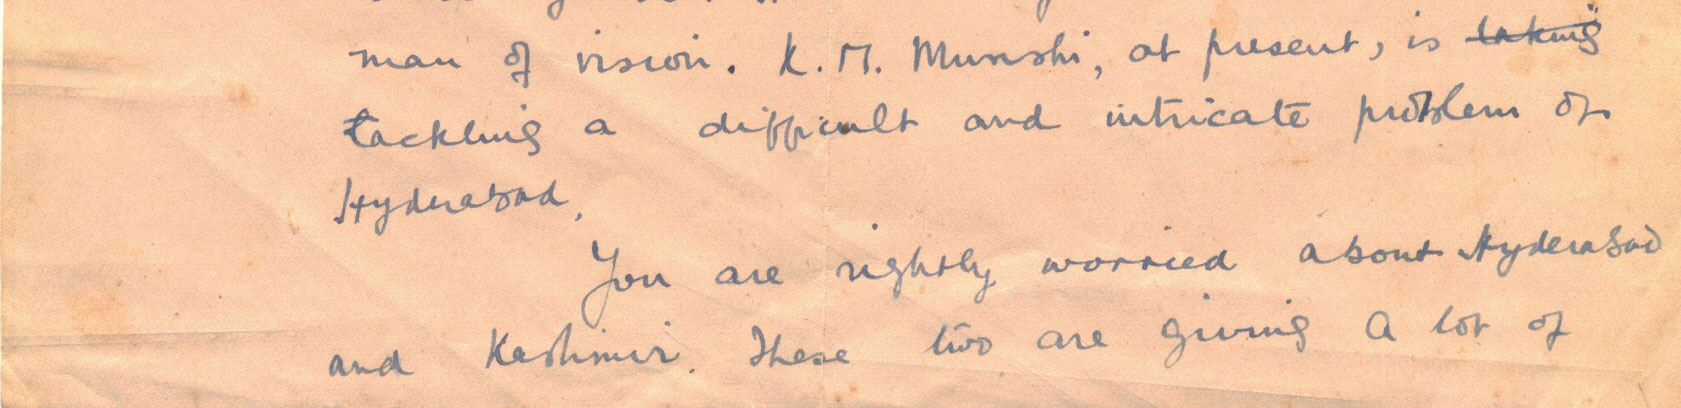 man of vision. K. M. Munshi, at present, is taking
tackling a difficult and intricate problem of
Hyderabad.
You are rightly worried about Hyderabad
and Kashmir. These two are giving a lot of